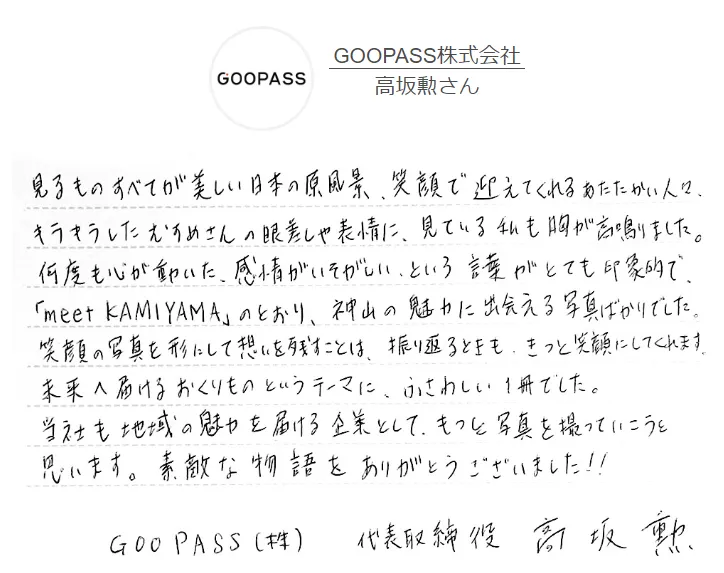 GOOPASS
GOOPASS株式会社
高坂勲さん
見るものすべてが美しい日本の原風景、笑顔で迎えてくれるあたたかい人々、
キラキラしたむすめさんの眼差しや表情に、見ている私も胸が高鳴りました。
何度も心が動いた、感情がいそがしい、という言葉がとても印象的で、
「meet KAMIYAMA」のとおり、神山の魅力に出会える写真ばかりでした。
笑顔の写真を形にして想いを残すことは、振り返るときも、きっと笑顔にしてくれます。
未来へ届けるおくりものというテーマに、ふさわしい1冊でした。
当社も地域の魅力を届ける企業として、もっと写真を撮っていこうと
思います。素敵な物語をありがとうございました!!
GOOPASS(株) 代表取締役 高坂 勲